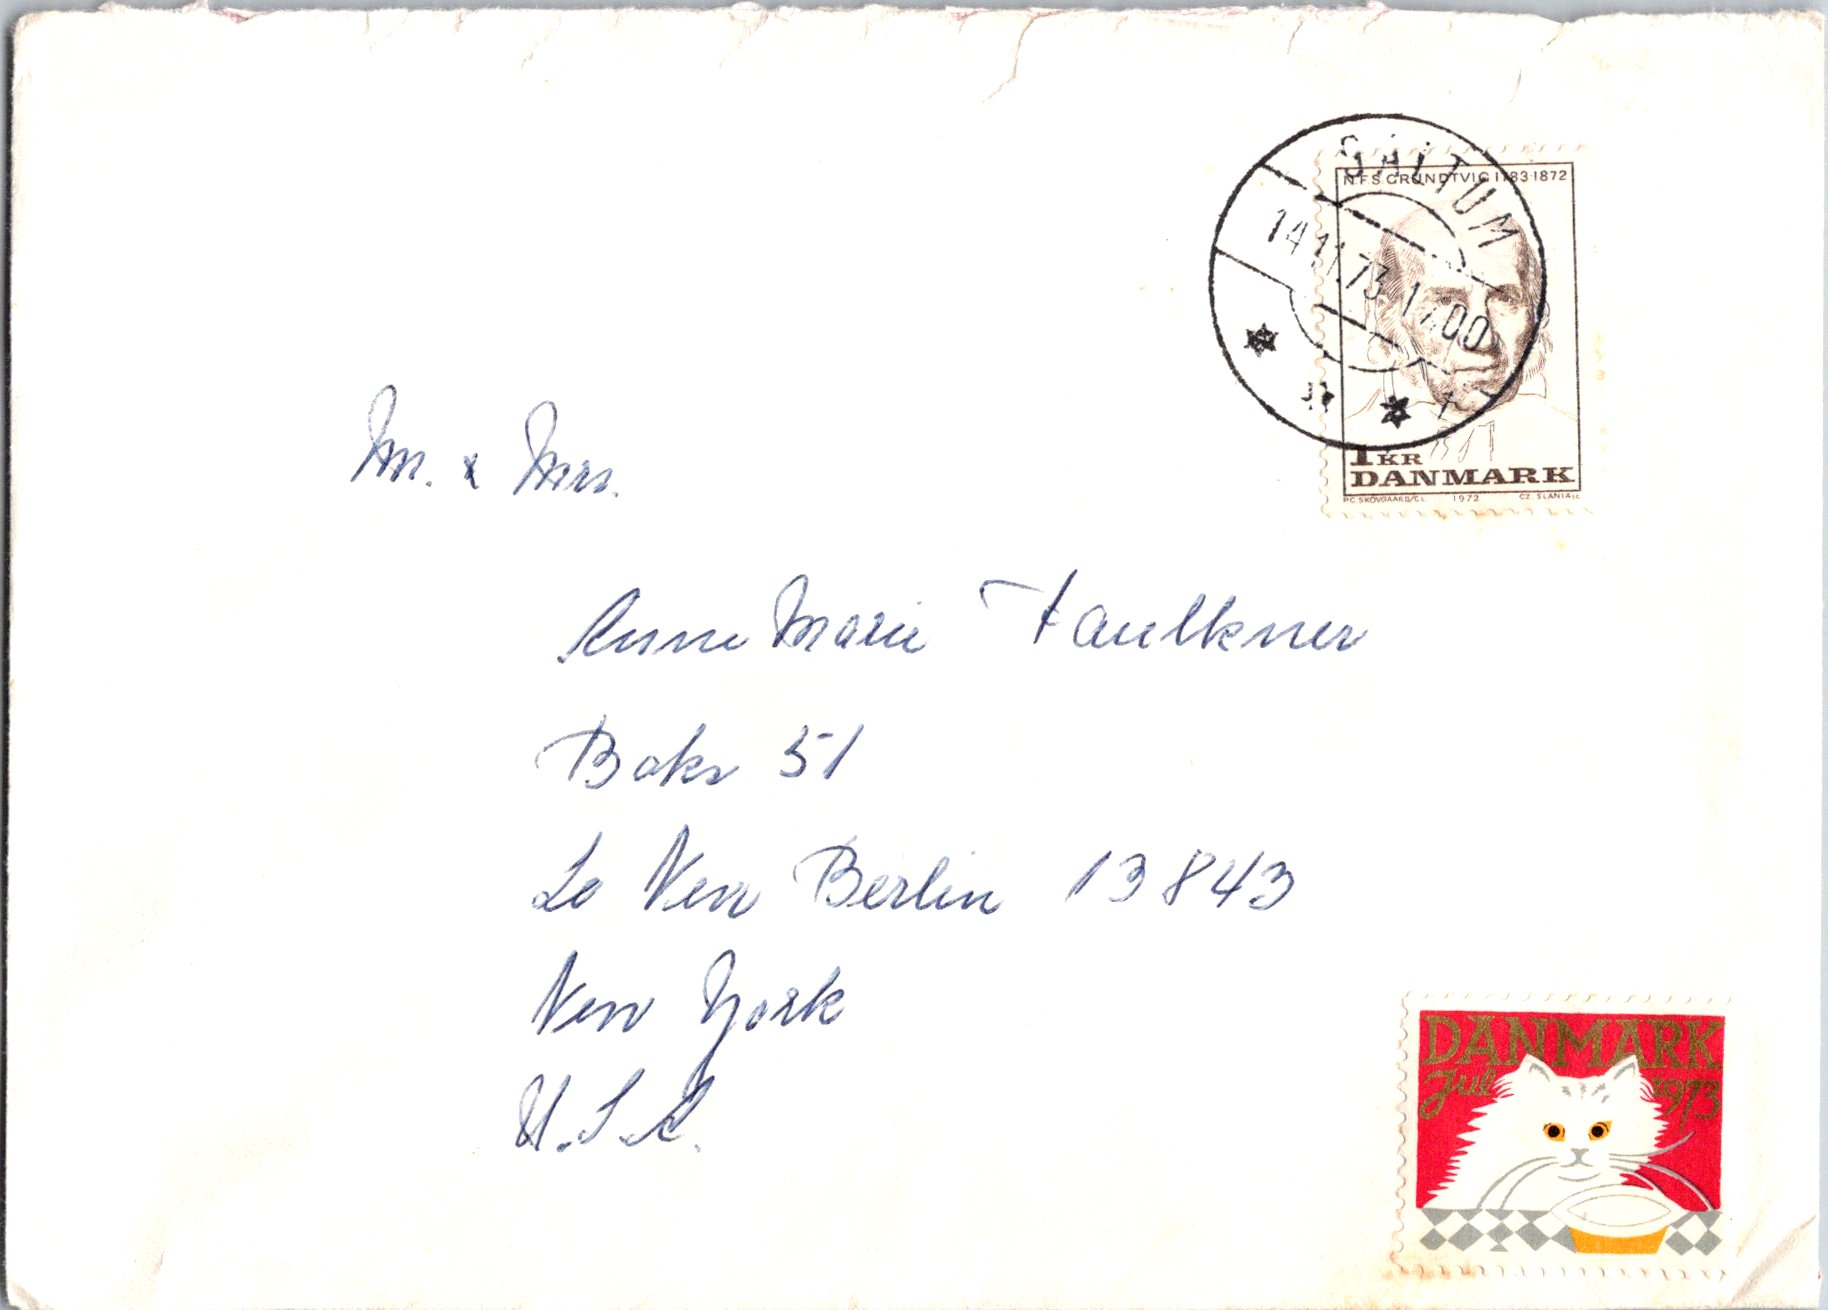 SALTUM
14.11.73 17.00
N.F.S. GRUNDTVIG 1783·1872
1 KR
DANMARK
P.C. SKOVGAARD/CL 1972 CZ. SLANIA sc
Mr. & Mrs.
Anne Marie Faulkner
Boks 51
So New Berlin 13843
New York
U.S.A.
DANMARK
Jul 1973